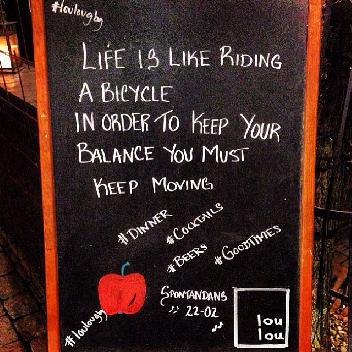 #loulougbg
LIFE IS LIKE RIDING
A BICYCLE
IN ORDER TO KEEP YOUR
BALANCE YOU MUST
KEEP MOVING
#DINNER
#COCKTAILS
#BEERS
#GOODTIMES
SPONTANDANS
22-02
#loulougbg
lou
lou